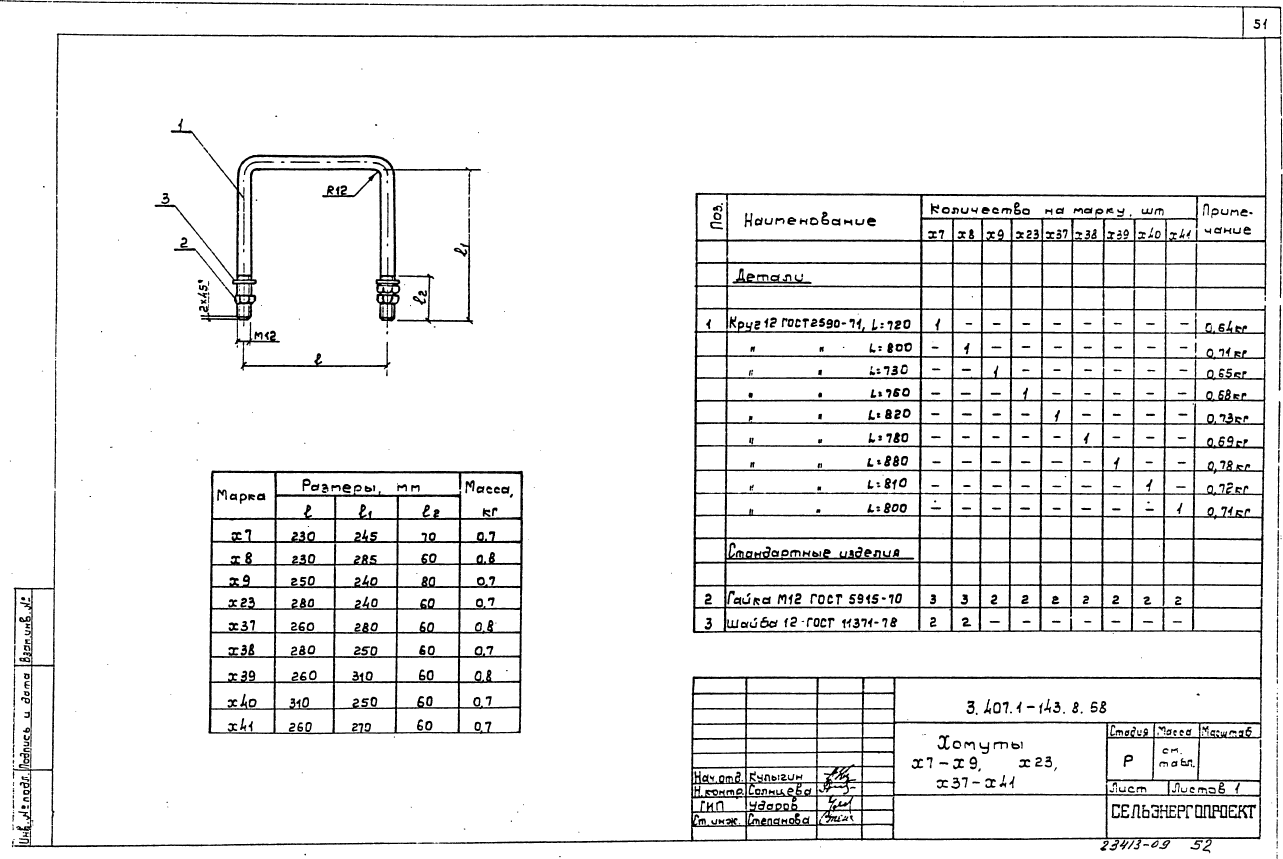 51
1
3
2
R12
l1
l2
2x45°
M12
l
Марка | Размеры, мм | Масса, кг
l | l1 | l2
х7 | 230 | 245 | 70 | 0.7
х8 | 230 | 285 | 60 | 0.8
х9 | 250 | 240 | 80 | 0.7
х23 | 280 | 240 | 60 | 0.7
х37 | 260 | 280 | 60 | 0.8
х38 | 280 | 250 | 60 | 0.7
х39 | 260 | 310 | 60 | 0.8
х40 | 310 | 250 | 60 | 0.7
х41 | 260 | 270 | 60 | 0.7
Поз. | Наименование | Количество на марку, шт | Приме-
х7 | х8 | х9 | х23 | х37 | х38 | х39 | х40 | х41 | чание
Детали
1 | Круг 12 ГОСТ 2590-71, L=720 | 1 | – | – | – | – | – | – | – | – | 0,64кг
" " L=800 | – | 1 | – | – | – | – | – | – | – | 0,71кг
" " L=730 | – | – | 1 | – | – | – | – | – | – | 0,65кг
" " L=760 | – | – | – | 1 | – | – | – | – | – | 0,68кг
" " L=820 | – | – | – | – | 1 | – | – | – | – | 0,73кг
" " L=780 | – | – | – | – | – | 1 | – | – | – | 0,69кг
" " L=880 | – | – | – | – | – | – | 1 | – | – | 0,78кг
" " L=810 | – | – | – | – | – | – | – | 1 | – | 0,72кг
" " L=800 | – | – | – | – | – | – | – | – | 1 | 0,71кг
Стандартные изделия
2 | Гайка М12 ГОСТ 5915-70 | 3 | 3 | 2 | 2 | 2 | 2 | 2 | 2 | 2
3 | Шайба 12 ГОСТ 11371-78 | 2 | 2 | – | – | – | – | – | – | –
3.407.1-143.8.58
Хомуты
х7-х9, х23,
х37-х41
Стадия | Масса | Масштаб
Р | см. табл.
Лист | Листов 1
СЕЛЬЭНЕРГОПРОЕКТ
Нач.отд. Кулыгин
Н.контр. Солнцева
ГИП Ударов
Ст.инж. Степанова
23413-09 52
Инв.№ подл. Подпись и дата Взам.инв.№